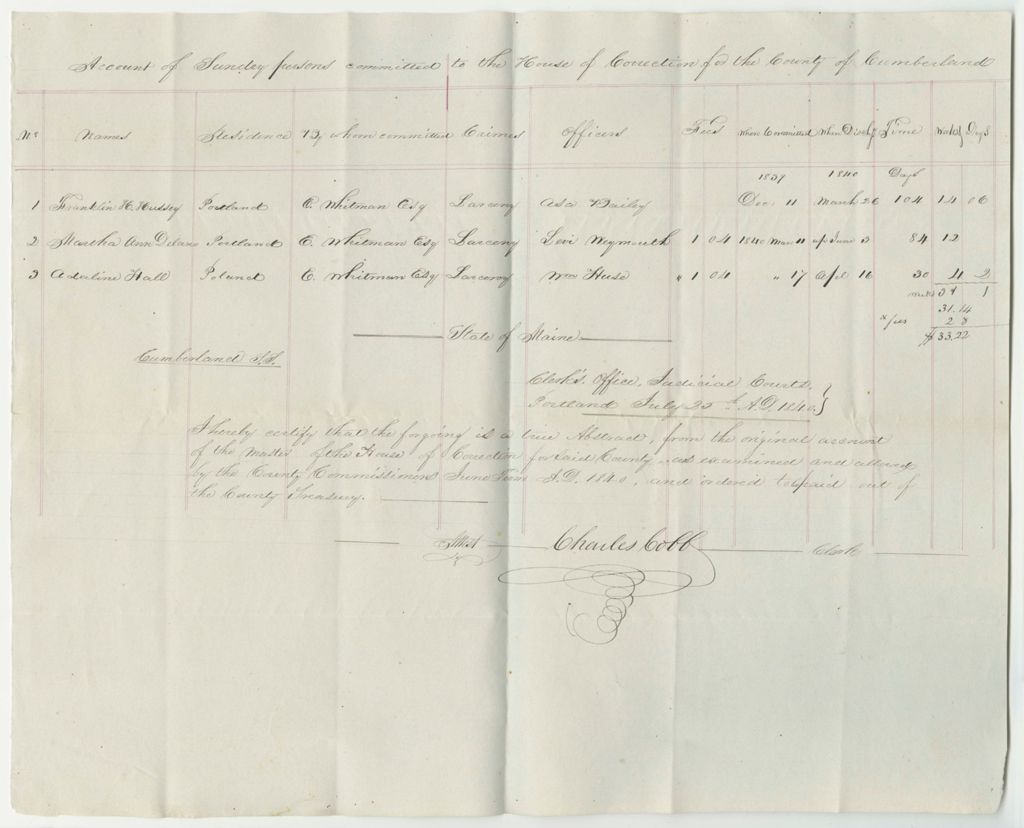 Account of Sundry persons committed to the House of Correction for the County of Cumberland
No Names Residence By whom committed Crimes Officers Fees When Committed When Disch'd Time Weeks Days
1839 1840 Days
1 Franklin H. Hussey Portland E. Whitman Esq Larceny Asa Bailey Dec 11 March 26 104 14 06
2 Martha Ann Portland E. Whitman Esq Larceny Levi Weymouth 1 04 1840 Mar 11 June 3 84 12
3 Adaline Hall Poland E. Whitman Esq Larceny Wm Huse " 1 04 " 17 Apl 16 30 4 2
weeks 31 1
31.14
x fees 2 8
$33,22
State of Maine
Cumberland S.S.
Clerk's Office, Judicial Courts,
Portland July 25th A.D. 1840
I hereby certify that the forgoing is a true Abstract, from the original account
of the Master of the House of Correction for Said County, as examined and allowed
by the County Commissioners June Term A.D. 1840, and ordered to be paid out of
the County Treasury.
Attest Charles Cobb Clerk